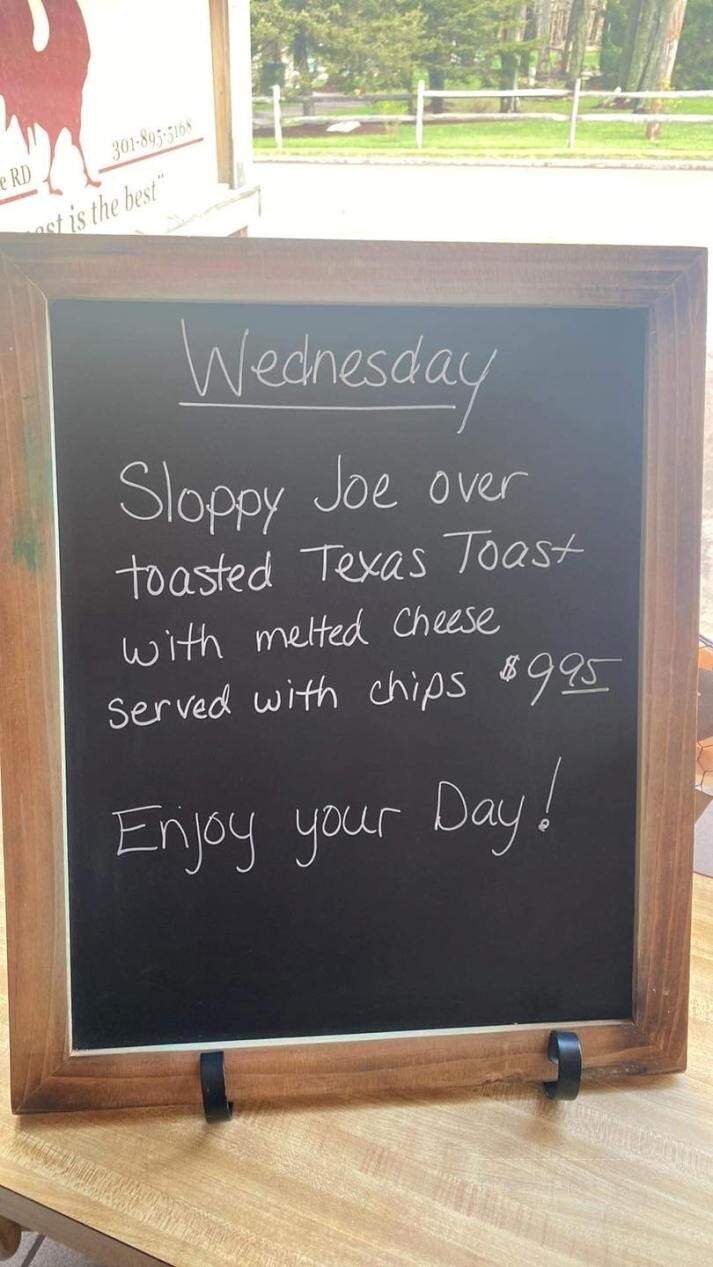 301-895-5168
e RD
est is the best"
Wednesday
Sloppy Joe over
toasted Texas Toast
with melted cheese
served with chips $9 95
Enjoy your Day!